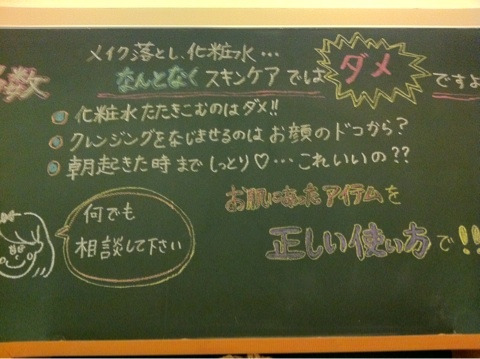 メイク落とし、化粧水…
数 なんとなくスキンケアでは ダメ ですよ
化粧水たたきこむのはダメ!!
クレンジングをなじませるのはお顔のドコから?
朝起きた時までしっとり♡…これいいの??
お肌にあったアイテムを
何でも
相談して下さい
正しい使い方で!!